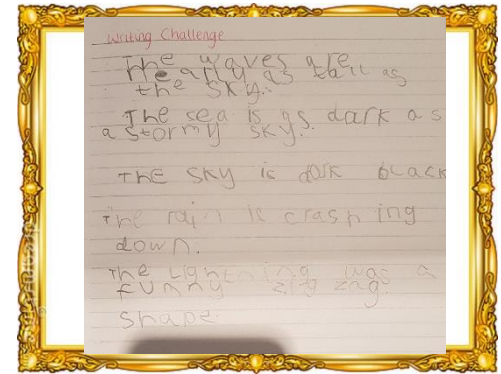 Writing Challenge
The waves are
nearly as tall as
the sky.
The sea is as dark as
a stormy sky.
The sky is dark black
The rain is crashing
down.
The lightning was a
funny zig zag
shape.